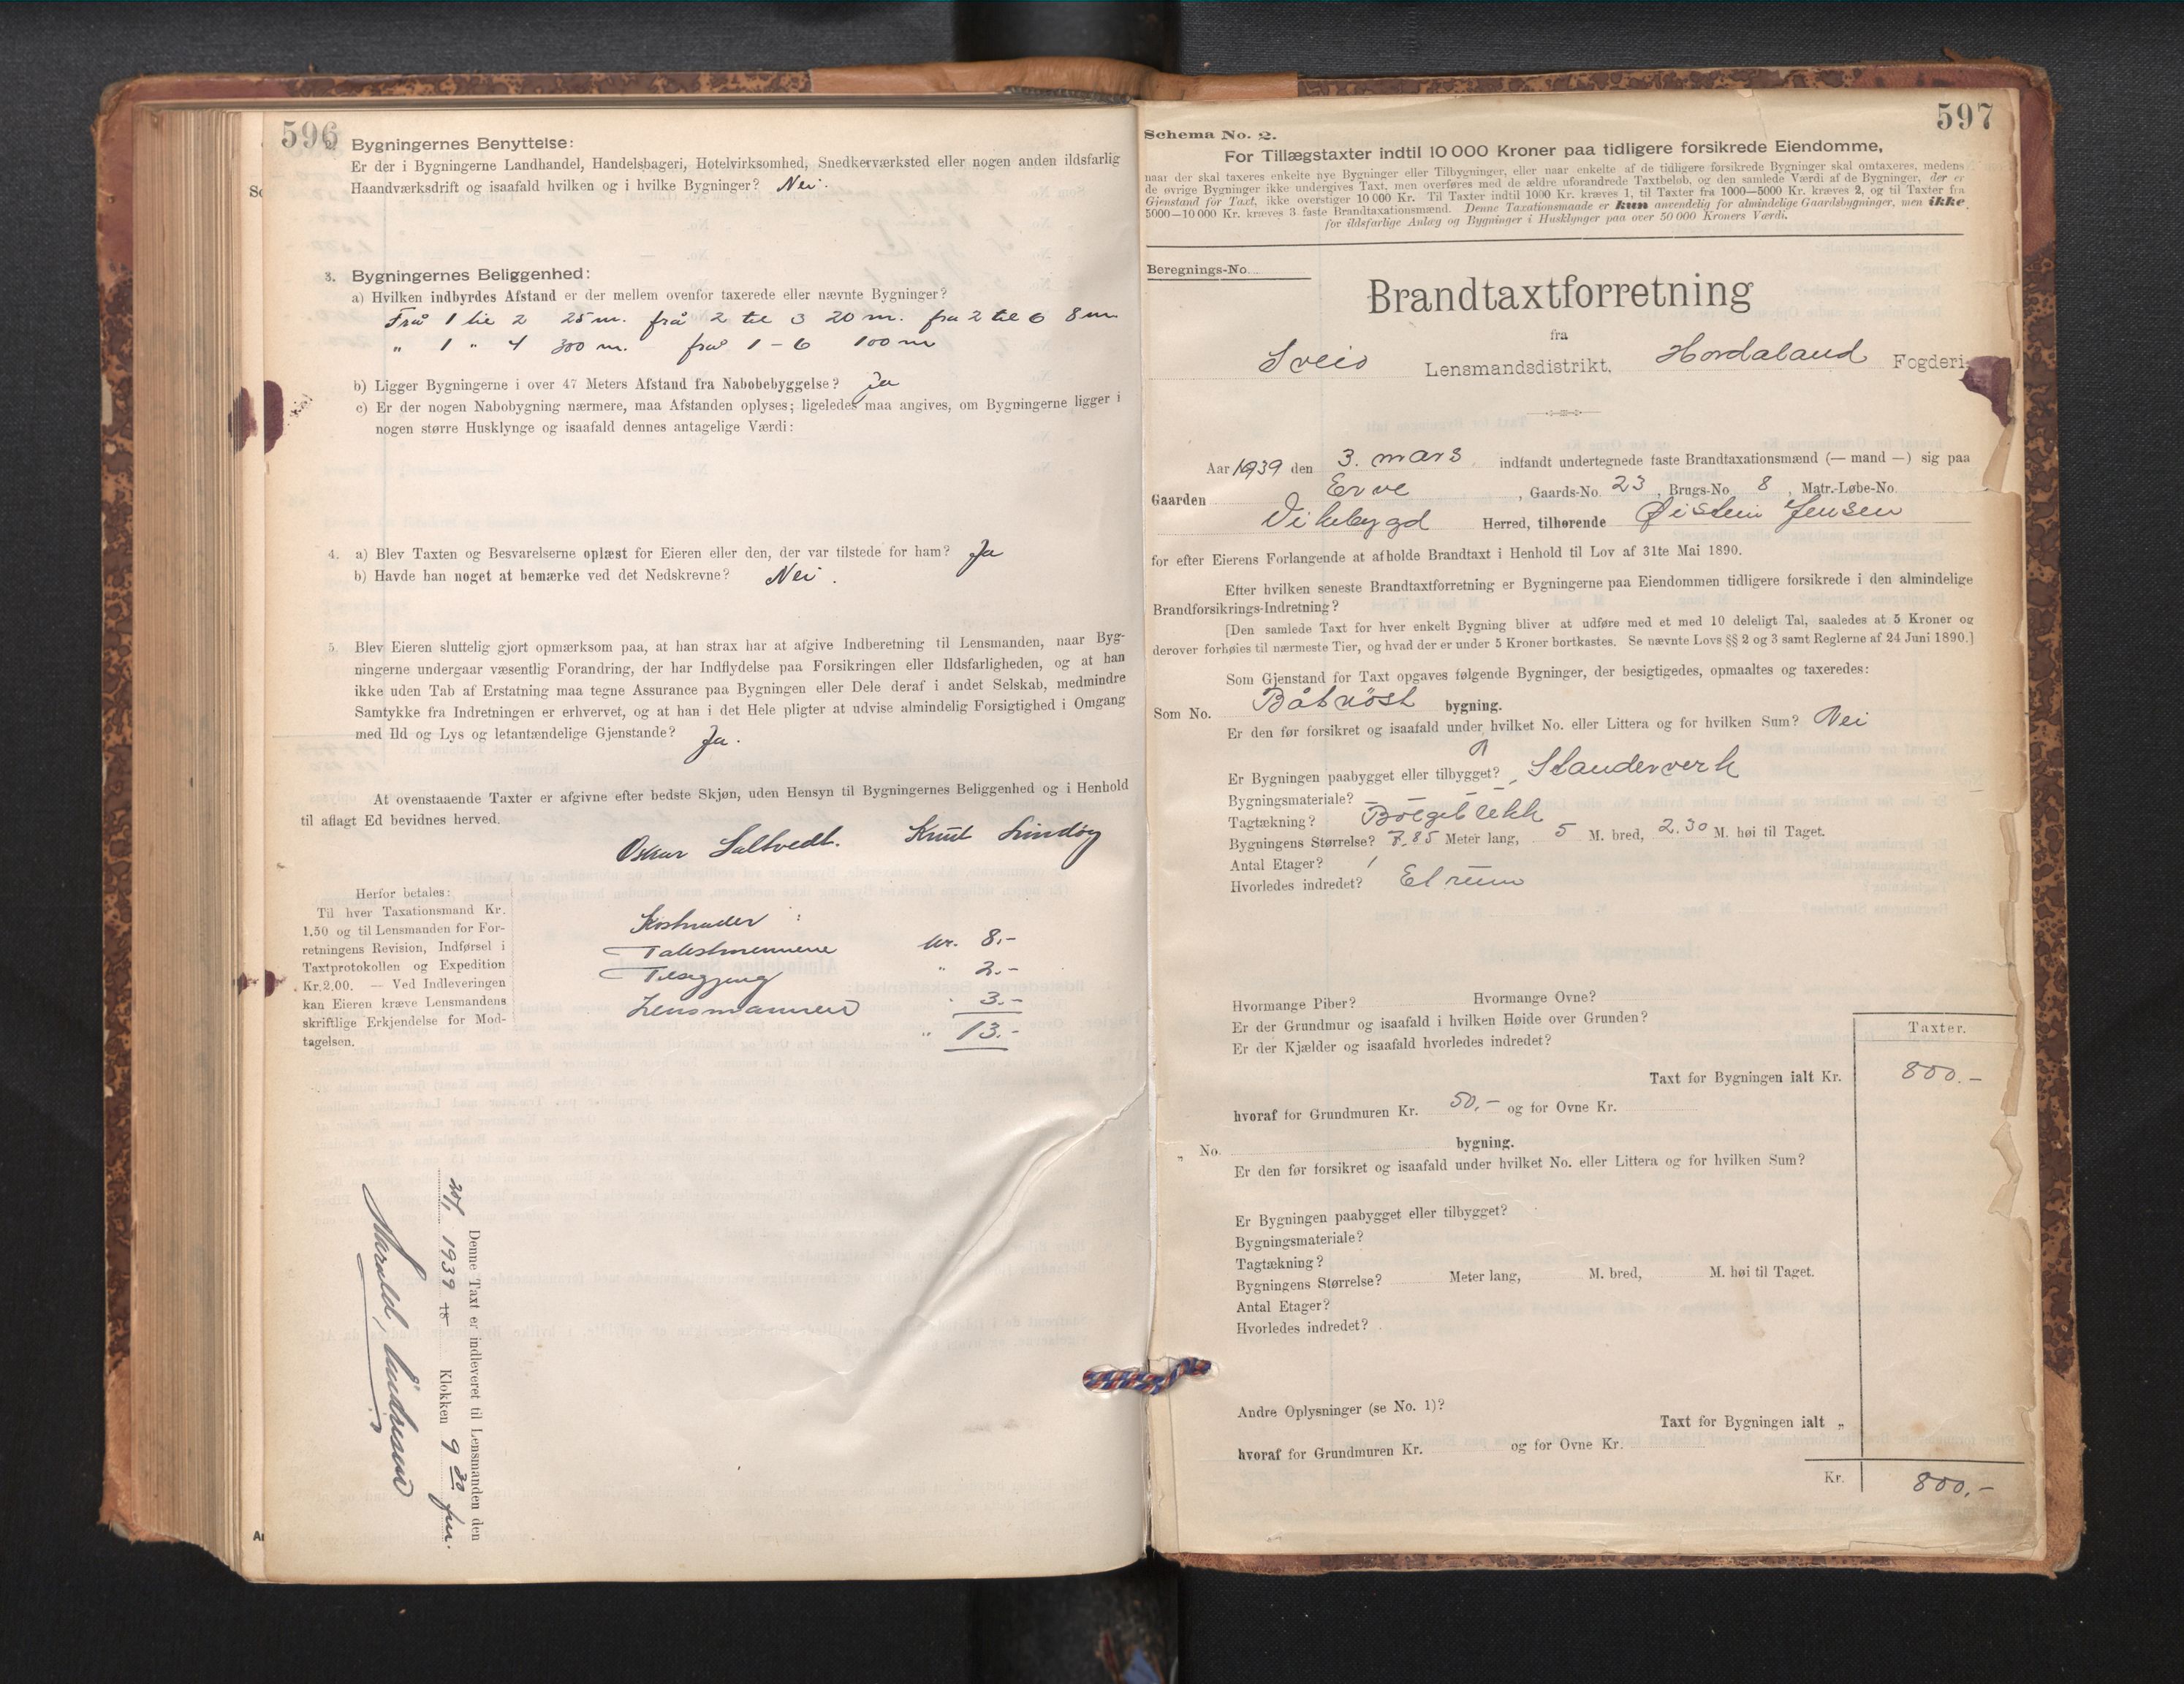 596
Bygningernes Benyttelse:
Er der i Bygningerne Landhandel, Handelsbageri, Hotelvirksomhed, Snedkerværksted eller nogen anden ildsfarlig
Haandværksdrift og isaafald hvilken og i hvilke Bygninger? Nei.
3. Bygningernes Beliggenhed:
a) Hvilken indbyrdes Afstand er der mellem ovenfor taxerede eller nævnte Bygninger?
Frå 1 til 2 25 m. frå 2 til 3 20 m. fra 2 til 6 8 m
" 1 " 4 300 m. fra 1 - 6 100 m
b) Ligger Bygningerne i over 47 Meters Afstand fra Nabobebyggelse? Ja
c) Er der nogen Nabobygning nærmere, maa Afstanden oplyses; ligeledes maa angives, om Bygningerne ligger i
nogen større Husklynge og isaafald dennes antagelige Værdi:
4. a) Blev Taxten og Besvarelserne oplæst for Eieren eller den, der var tilstede for ham? Ja
b) Havde han noget at bemærke ved det Nedskrevne? Nei.
5. Blev Eieren sluttelig gjort opmærksom paa, at han strax har at afgive Indberetning til Lensmanden, naar Byg-
ningerne undergaar væsentlig Forandring, der har Indflydelse paa Forsikringen eller Ildsfarligheden, og at han
ikke uden Tab af Erstatning maa tegne Assurance paa Bygningen eller Dele deraf i andet Selskab, medmindre
Samtykke fra Indretningen er erhvervet, og at han i det Hele pligter at udvise almindelig Forsigtighed i Omgang
med Ild og Lys og letantændelige Gjenstande? Ja.
At ovenstaaende Taxter er afgivne efter bedste Skjøn, uden Hensyn til Bygningernes Beliggenhed og i Henhold
til aflagt Ed bevidnes herved.
Oskar Saltvedt. Knut Lindøy
Herfor betales:
Til hver Taxationsmand Kr.
1.50 og til Lensmanden for For-
retningens Revision, Indførsel i
Taxtprotokollen og Expedition
Kr. 2.00. — Ved Indleveringen
kan Eieren kræve Lensmandens
skriftlige Erkjendelse for Mod-
tagelsen.
Kostnader:
Takstmennene kr. 8.-
" 2.-
Lensmannen " 3.-
" 13.-
Denne Taxt er indleveret til Lensmanden den
1939 18 Klokken 9 30 fm.
Harald
597
Schema No. 2.
For Tillægstaxter indtil 10 000 Kroner paa tidligere forsikrede Eiendomme,
naar der skal taxeres enkelte nye Bygninger eller Tilbygninger, eller naar enkelte af de tidligere forsikrede Bygninger skal omtaxeres, medens
de øvrige Bygninger ikke undergives Taxt, men overføres med de ældre uforandrede Taxtbeløb, og den samlede Værdi af de Bygninger, der er
Gjenstand for Taxt, ikke overstiger 10 000 Kr. Til Taxter indtil 1000 Kr. kræves 1, til Taxter fra 1000—5000 Kr. kræves 2, og til Taxter fra
5000—10 000 Kr. kræves 3 faste Brandtaxationsmænd. Denne Taxationsmaade er kun anvendelig for almindelige Gaardsbygninger, men ikke
for ildsfarlige Anlæg og Bygninger i Husklynger paa over 50 000 Kroners Værdi.
Beregnings-No.
Brandtaxtforretning
fra
Sveio Lensmandsdistrikt, Hordaland Fogderi
Aar 1939 den 3. mars indfandt undertegnede faste Brandtaxationsmænd (— mand —) sig paa
Gaarden Erve, Gaards-No. 23, Brugs-No. 8, Matr.-Løbe-No.
Vikebygd Herred, tilhørende Øistein Jensen
for efter Eierens Forlangende at afholde Brandtaxt i Henhold til Lov af 31te Mai 1890.
Efter hvilken seneste Brandtaxtforretning er Bygningerne paa Eiendommen tidligere forsikrede i den almindelige
Brandforsikrings-Indretning?
[Den samlede Taxt for hver enkelt Bygning bliver at udføre med et med 10 deleligt Tal, saaledes at 5 Kroner og
derover forhøies til nærmeste Tier, og hvad der er under 5 Kroner bortkastes. Se nævnte Lovs §§ 2 og 3 samt Reglerne af 24 Juni 1890.]
Som Gjenstand for Taxt opgaves følgende Bygninger, der besigtigedes, opmaaltes og taxeredes:
Som No. Båtnöst bygning.
Er den før forsikret og isaafald under hvilket No. eller Littera og for hvilken Sum? Nei
Er Bygningen paabygget eller tilbygget?
Bygningsmateriale? Standerverk
Tagtækning? Bølgeblekk
Bygningens Størrelse? 7.85 Meter lang, 5 M. bred, 2.30 M. høi til Taget.
Antal Etager? 1
Hvorledes indredet? Et rum
Hvormange Piber? Hvormange Ovne?
Er der Grundmur og isaafald i hvilken Høide over Grunden?
Er der Kjælder og isaafald hvorledes indredet?
Taxter.
Taxt for Bygningen ialt Kr. 800.-
hvoraf for Grundmuren Kr. 50,- og for Ovne Kr.
„ No. bygning.
Er den før forsikret og isaafald under hvilket No. eller Littera og for hvilken Sum?
Er Bygningen paabygget eller tilbygget?
Bygningsmateriale?
Tagtækning?
Bygningens Størrelse? Meter lang, M. bred, M. høi til Taget.
Antal Etager?
Hvorledes indredet?
Andre Oplysninger (se No. 1)?
Taxt for Bygningen ialt „
hvoraf for Grundmuren Kr. og for Ovne Kr.
Kr. 800.-